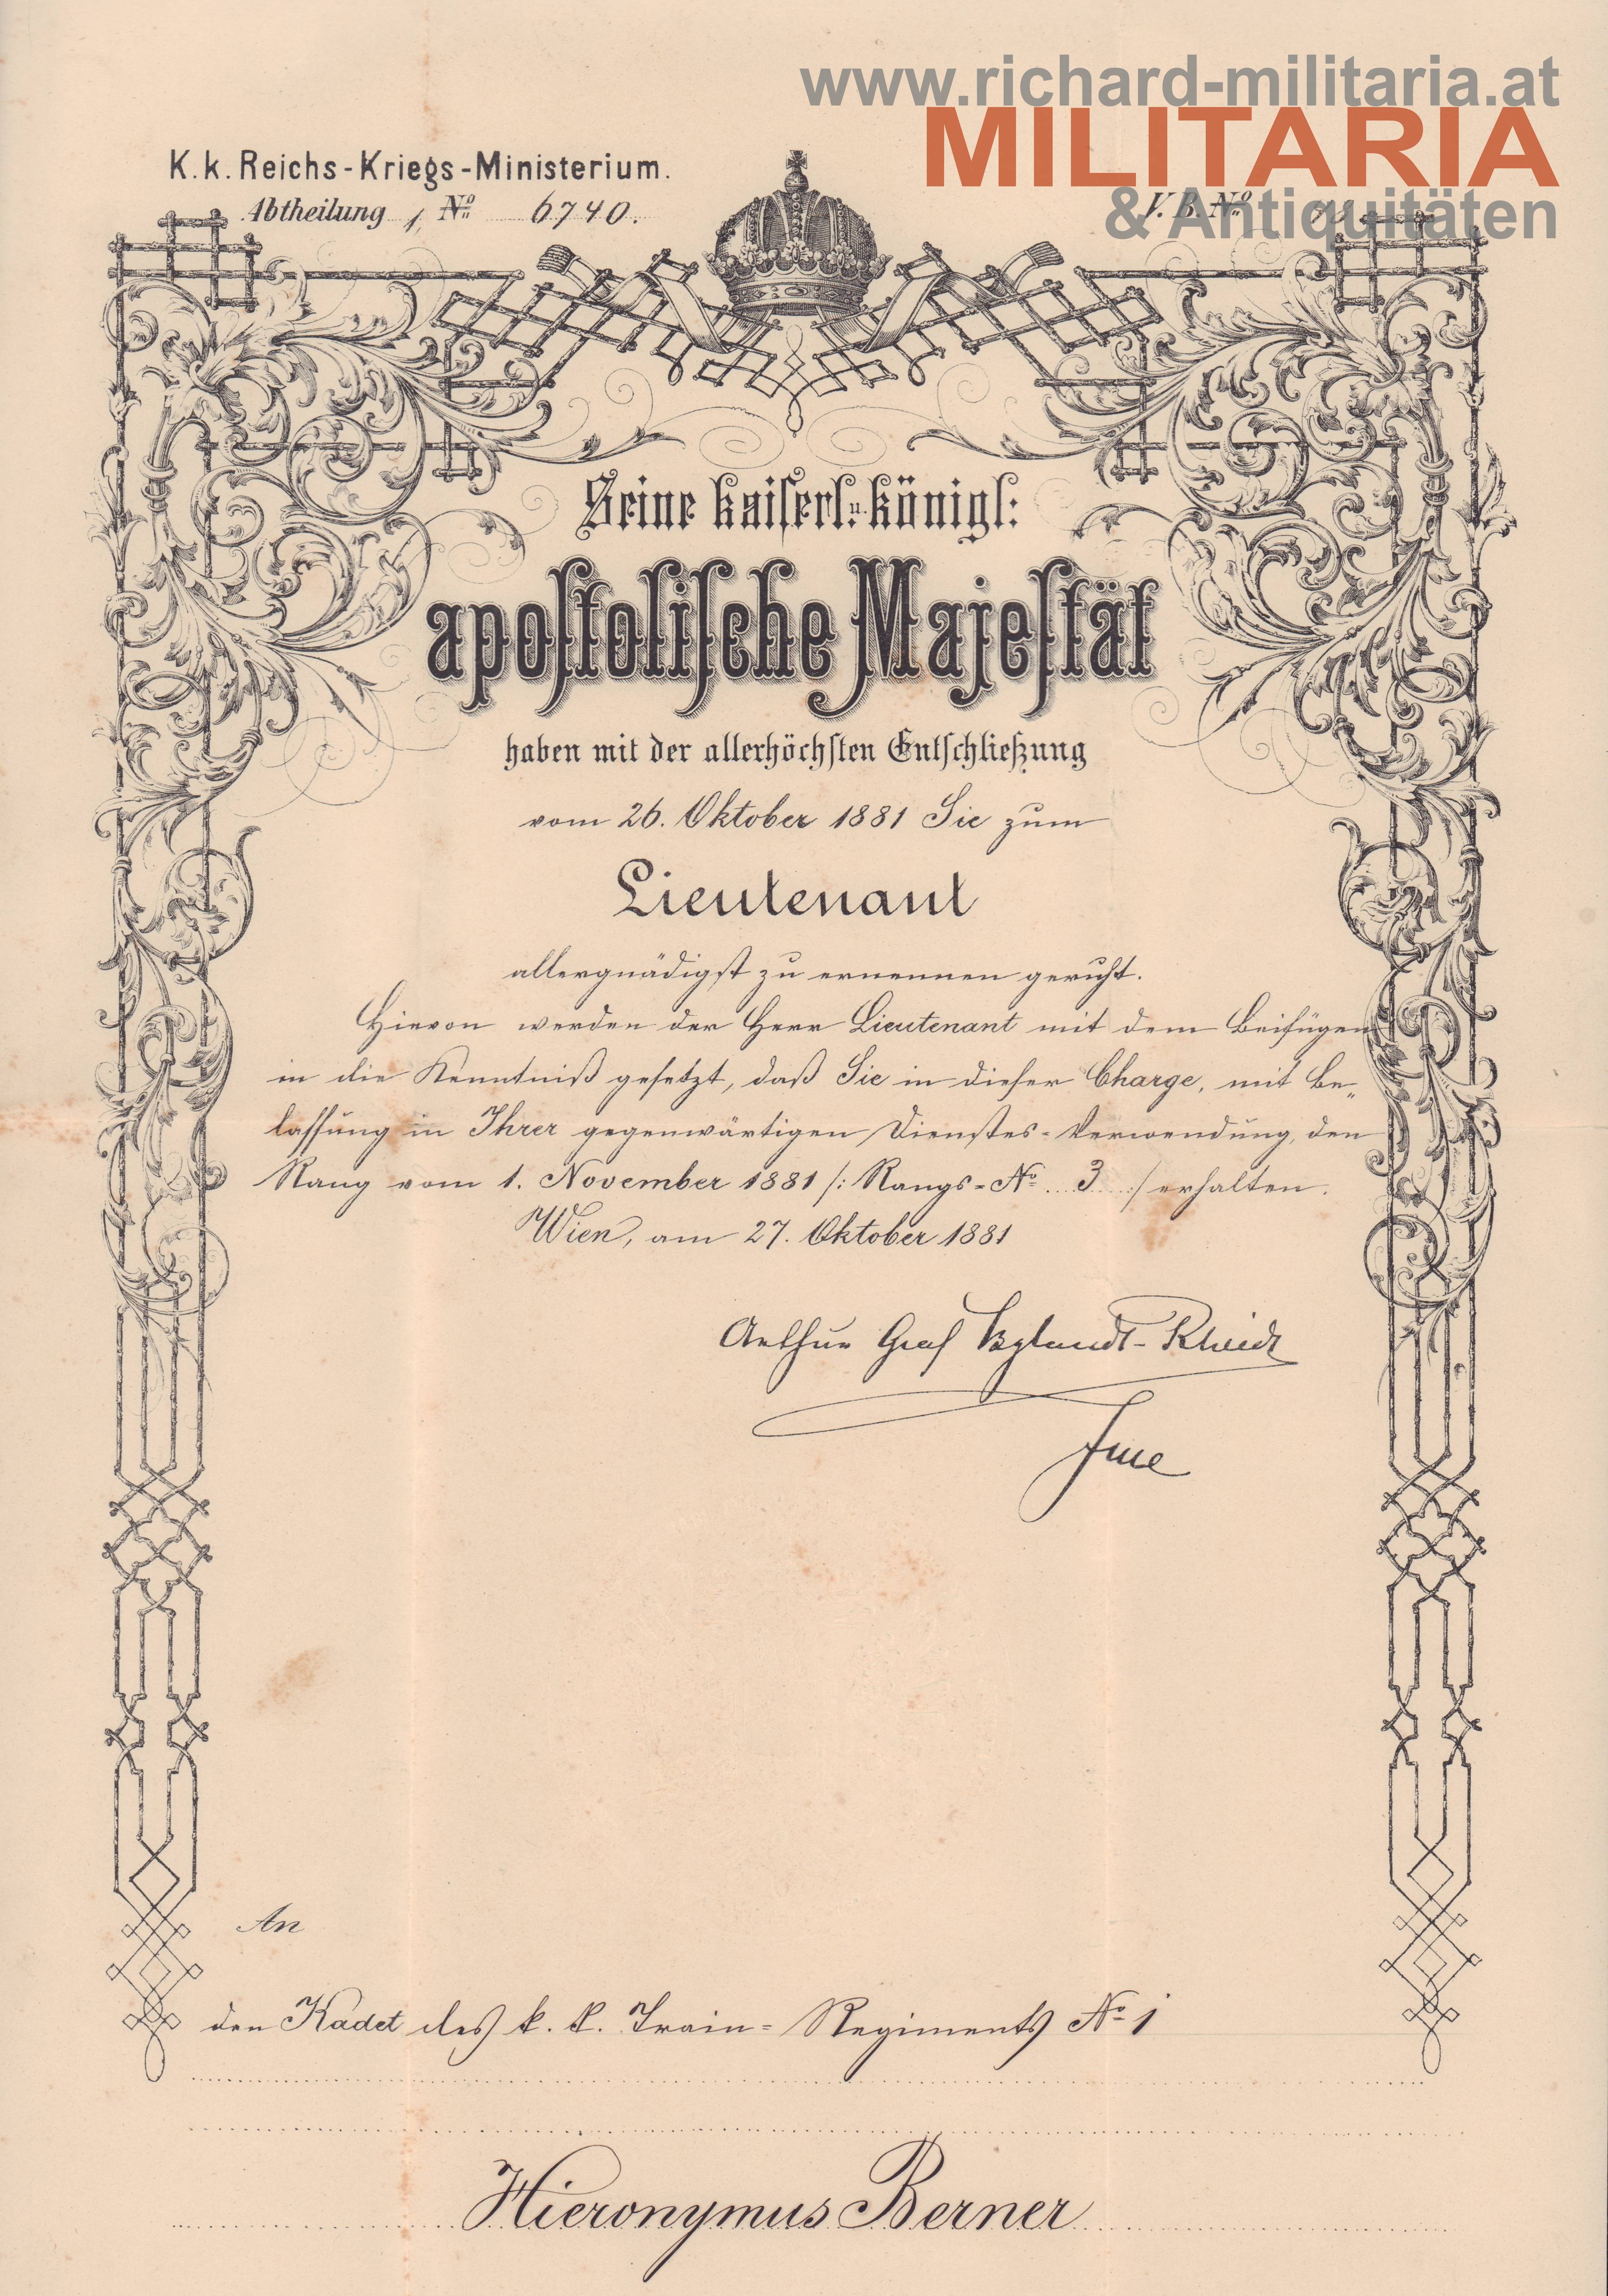 www.richard-militaria.at
MILITARIA
& Antiquitäten
K. k. Reichs-Kriegs-Ministerium.
Abtheilung 1, No 6740.
V. B. No
Seine kaiserl: u. königl:
apostolische Majestät
haben mit der allerhöchsten Entschließung
vom 26. Oktober 1881 Sie zum
Lieutenant
allergnädigst zu ernennen geruht.
Hievon werden der Herr Lieutenant mit dem Beifügen
in die Kenntniß gesetzt, daß Sie in dieser Charge, mit Be„
lassung in Ihrer gegenwärtigen Dienstes-Verwendung, den
Rang vom 1. November 1881 /: Rangs-No 3 :/ erhalten.
Wien, am 27. Oktober 1881
Arthur Graf Bylandt-Rheidt
An
den Kadet des k. k. Train-Regiments No 1
Hieronymus Berner